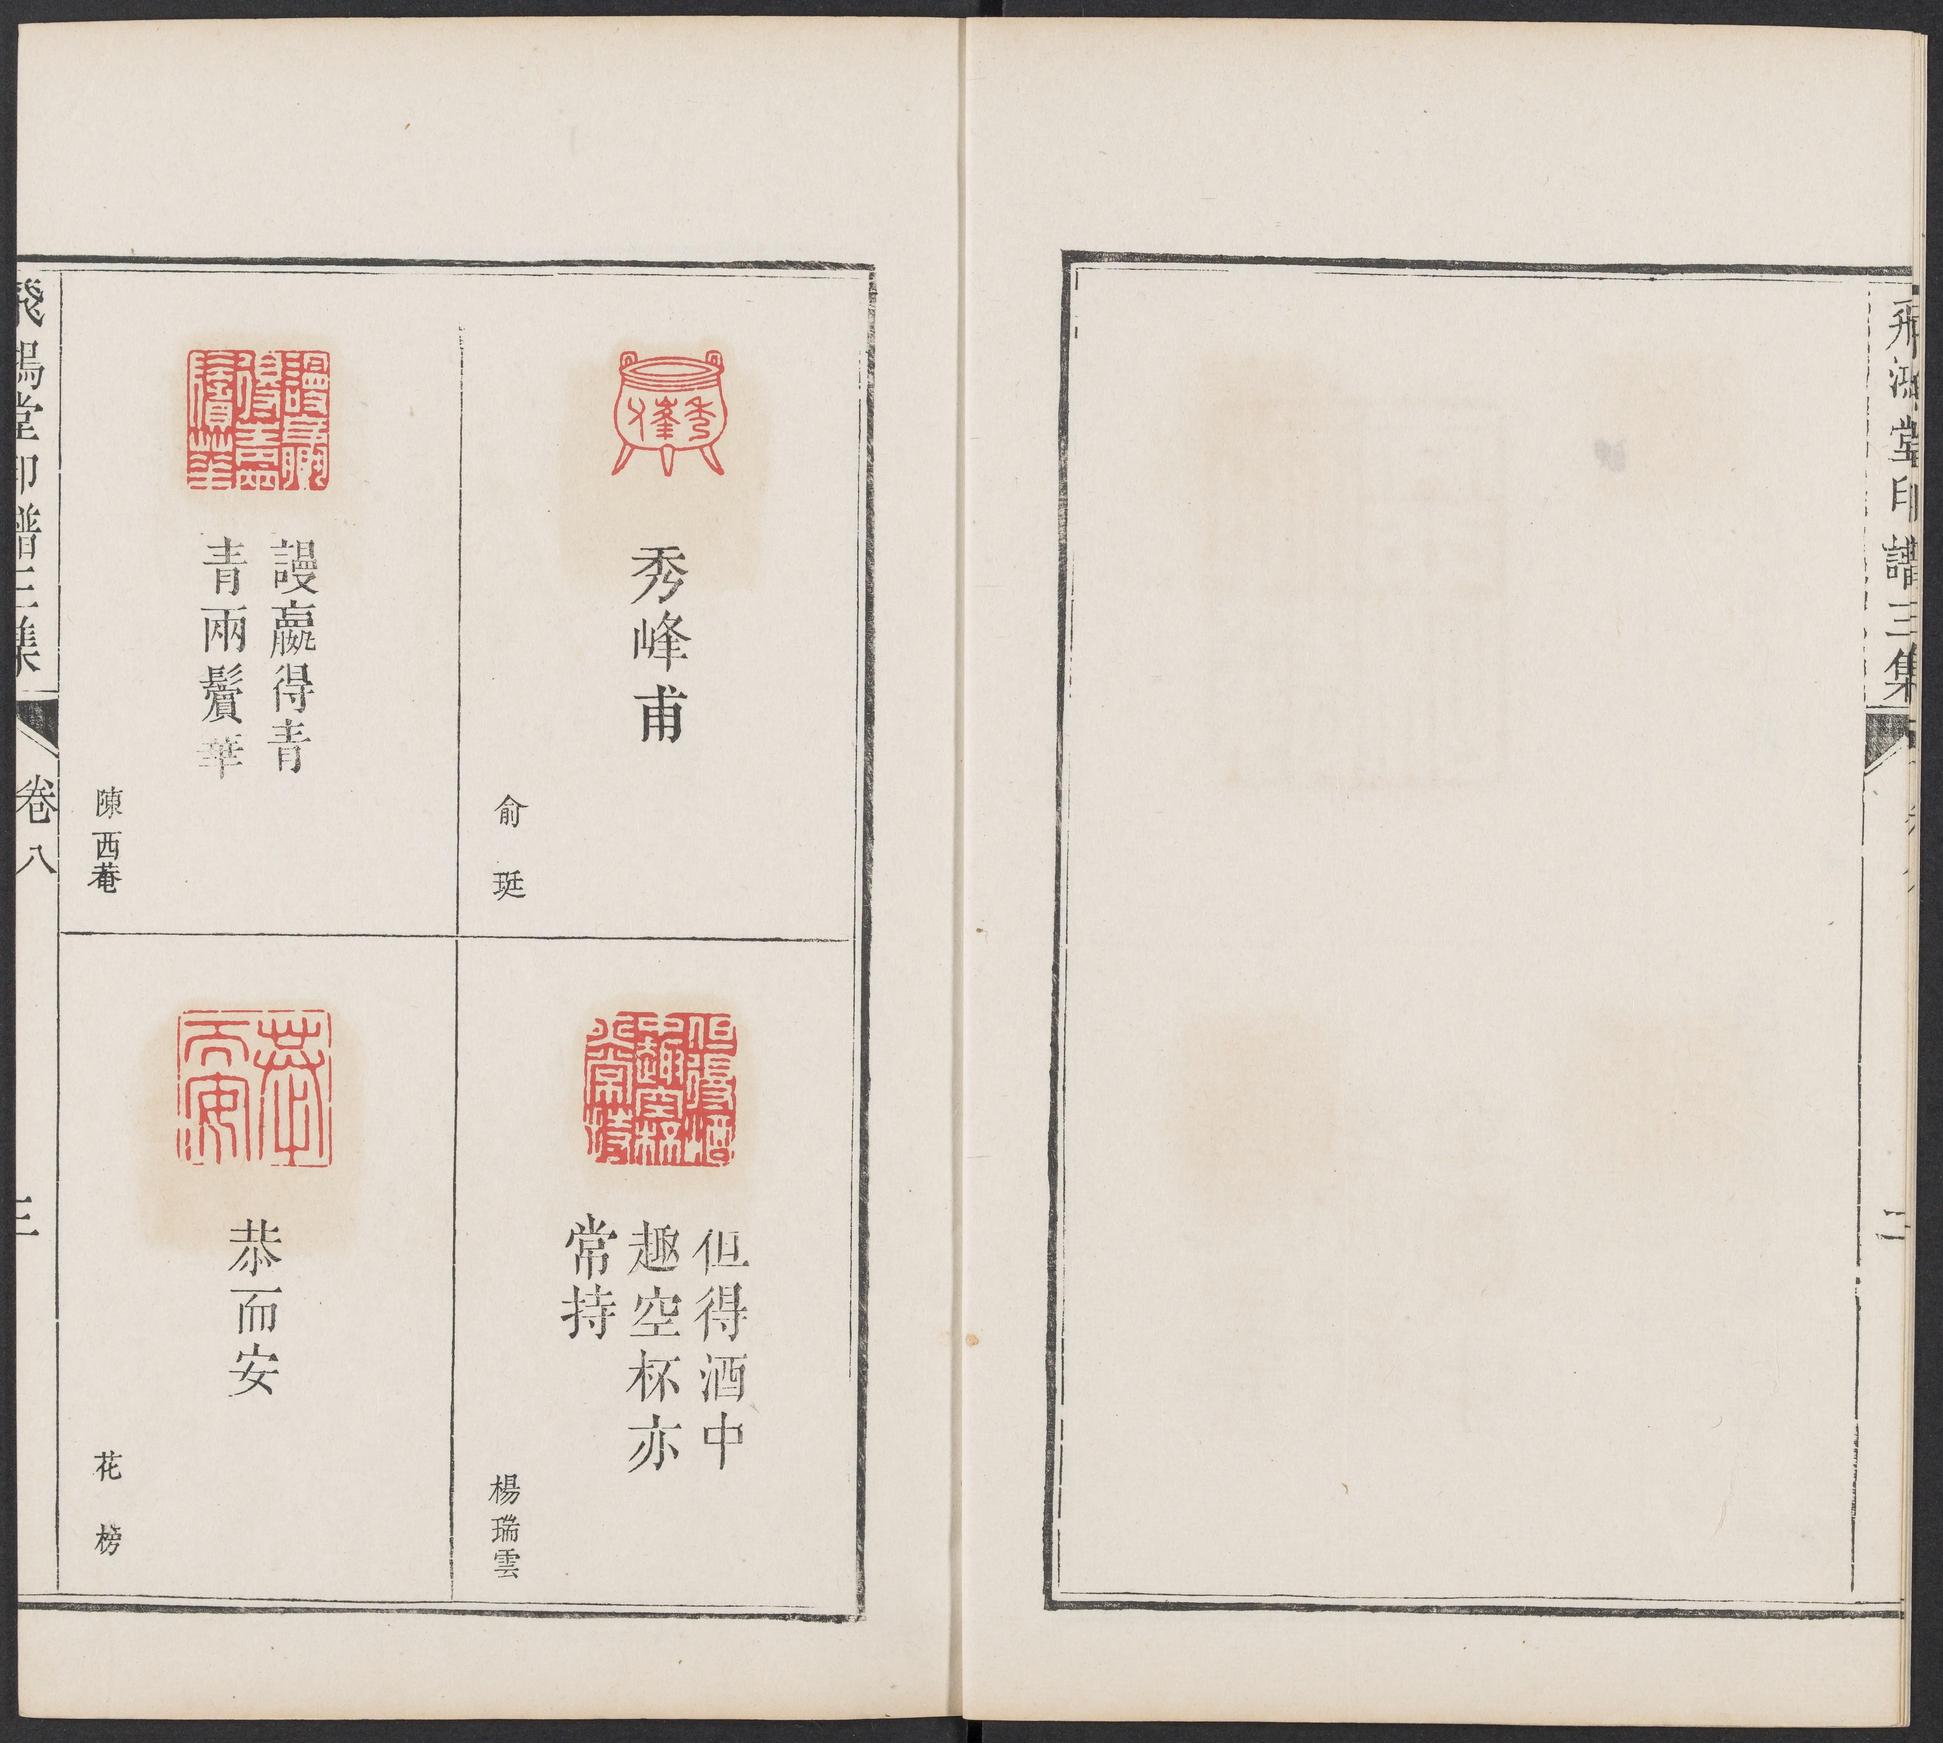 飛鴻堂印譜三集
二
秀峰甫
俞珽
但得酒中
趣空杯亦
常持
楊瑞雲
謾贏得青
青兩鬢華
陳西菴
恭而安
花榜
飛鴻堂印譜三集
卷八
三